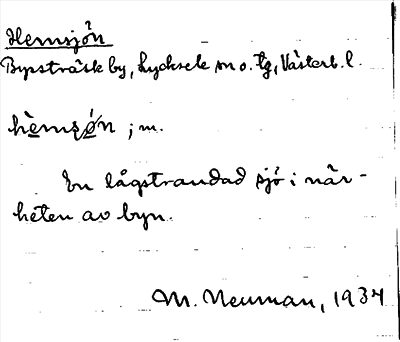 Hemsjön
Bysträsk by, Lycksele sn o. tg, Västerb. l.
hèmsǿn ; m.
En lågstrandad sjö i när-
heten av byn.
M. Neuman, 1934